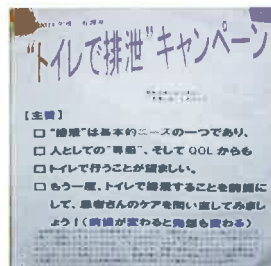 "トイレで排泄"キャンペーン
【主旨】
□ "排泄"は基本的ニーズの一つであり、
□ 人としての"尊厳"、そして QOL からも
□ トイレで行うことが望ましい。
□ もう一度、トイレで排泄することを前提に
して、患者さんのケアを問い直してみまし
ょう！（前提が変わると発想も変わる）